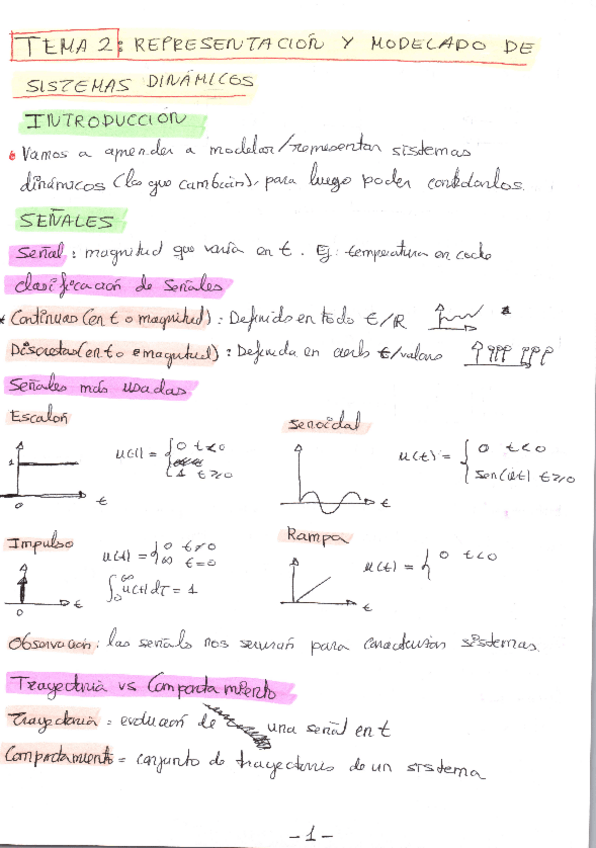 TEMA 2: REPRESENTACIÓN Y MODELADO DE
SISTEMAS DINÁMICOS
INTRODUCCIÓN
Vamos a aprender a modelar/representar sistemas
dinámicos (los que cambian), para luego poder controlarlos.
SEÑALES
Señal: magnitud que varía en t. Ej: temperatura en coche
clasificación de señales
* Continuas (en t o magnitud): Definida en todo t/R
Discretas (en t o magnitud): Definida en ciertos t/valores
Señales más usadas
Escalón
1
0
t
u(t) = { 0 t<0
1 t≥0
senoidal
t
u(t) = { 0 t<0
sen(ωt) t≥0
Impulso
0
t
u(t) = { 0 t≠0
∞ t=0
∫₀^∞ u(t) dτ = 1
Rampa
t
u(t) = { 0 t<0
Observación: las señales nos servirán para caracterizar sistemas.
Trayectoria vs Comportamiento
Trayectoria = evolución de una señal en t
Comportamiento = conjunto de trayectorias de un sistema
-1-